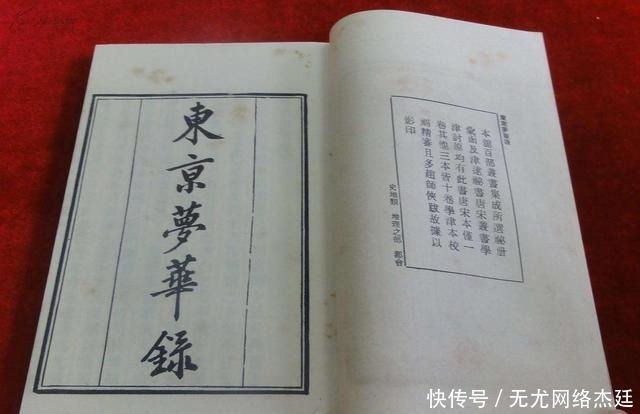 東京夢華錄
東京夢華錄
本館百部叢書集成所選祕册
彙函及津逮祕書唐宋叢書學
津討原均有此書唐宋本僅一
卷其他三本皆十卷學津本校
勘精審且多趙師俠跋故據以
影印
史地類 之部 都會
快传号/无尤网络杰廷